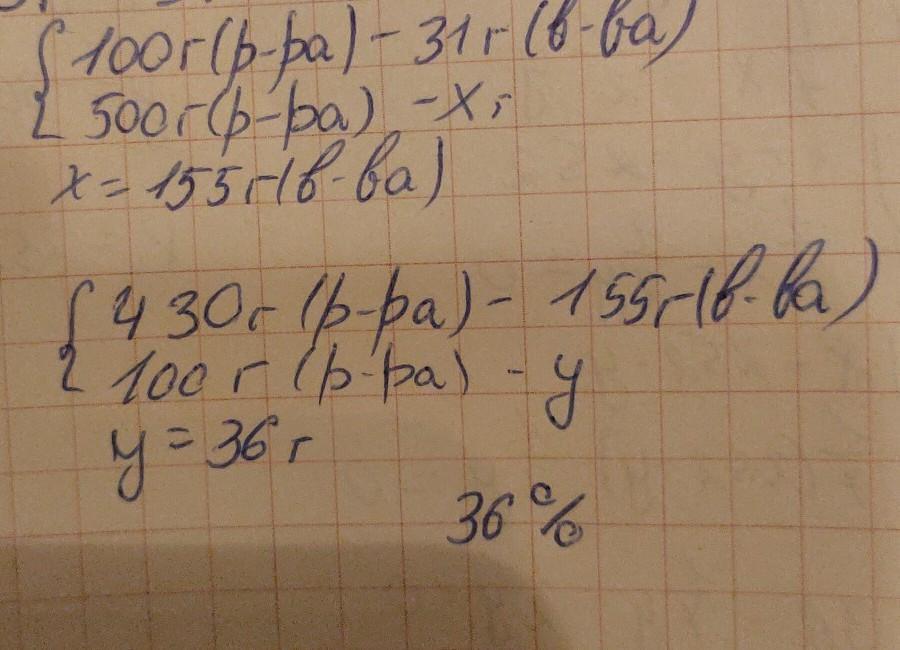 100г(р-ра) - 31г(в-ва)
500г(р-ра) - х г
х = 155г(в-ва)
430г (р-ра) - 155г(в-ва)
100 г (р-ра) - у
у = 36 г
36 %